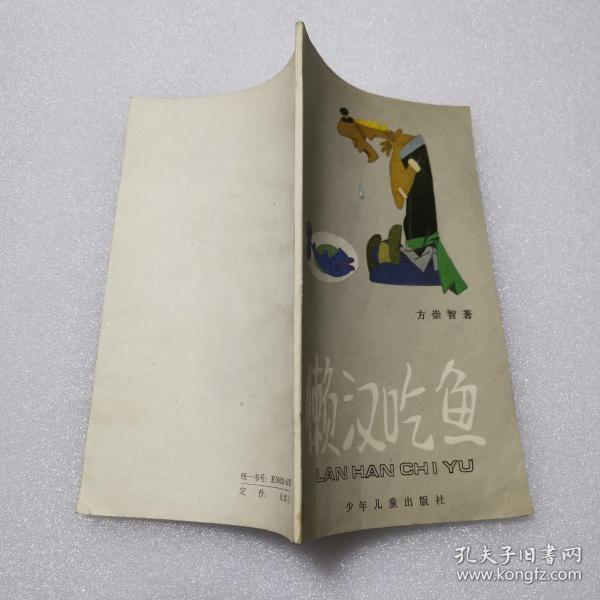 方崇智著
懒汉吃鱼
LAN HAN CHI YU
少年儿童出版社
统一书号:
定 价:
孔夫子旧书网
www.kongfz.com